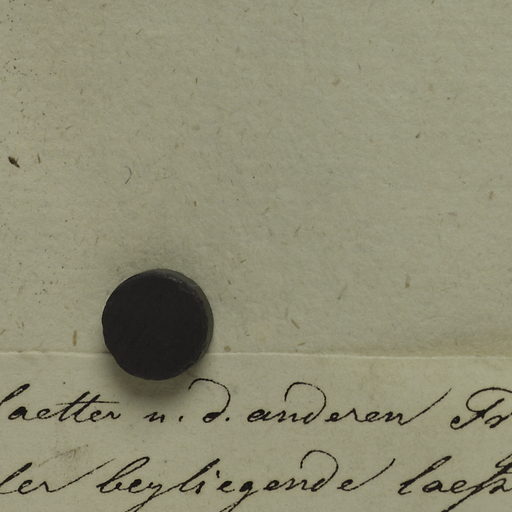 laetter u. d. anderen Fr
ler beyliegende laeß